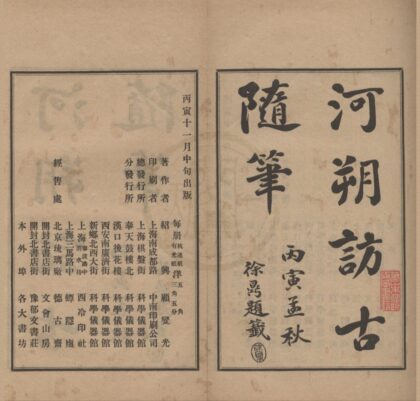 河朔訪古
隨筆
丙寅孟秋
徐鼎題籤
丙寅十一月中旬出版
每冊 杭連紙 有光紙 洋 五角 三角五分
著作者 紹興 顧燮光
印刷者 上海南成都路 中南印刷公司
總發行所 上海棋盤街 科學儀器館
分發行所 奉天鼓樓北 科學儀器館
漢口後花樓 科學儀器館
西安南廣濟街 科學儀器館
新鄉北西大街 科學儀器館
經售處 上海 西泠印社
上海三馬路中 蟫隱廬
北京琉璃廠 德古齋
開封北書店街 文會山房
開封北書店街 豫郁文書莊
本外埠 各大書坊